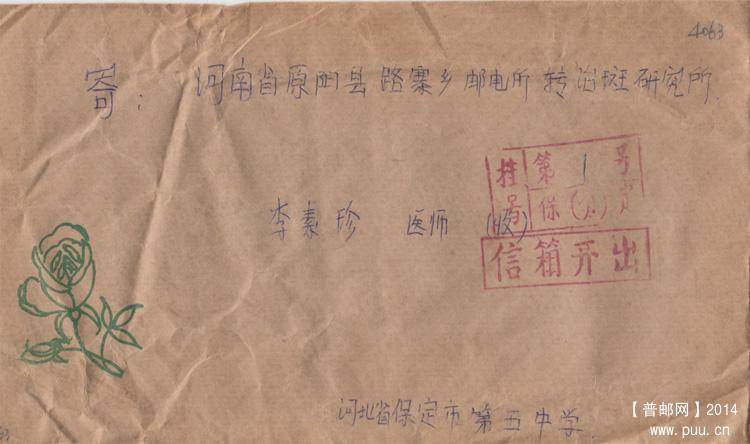 4063
寄：河南省原阳县路寨乡邮电所转治斑研究所.
挂号 第 1 号
保(
李素珍 医师 (收)
信箱开出
河北省保定市第五中学
【普邮网】2014
www.puu.cn